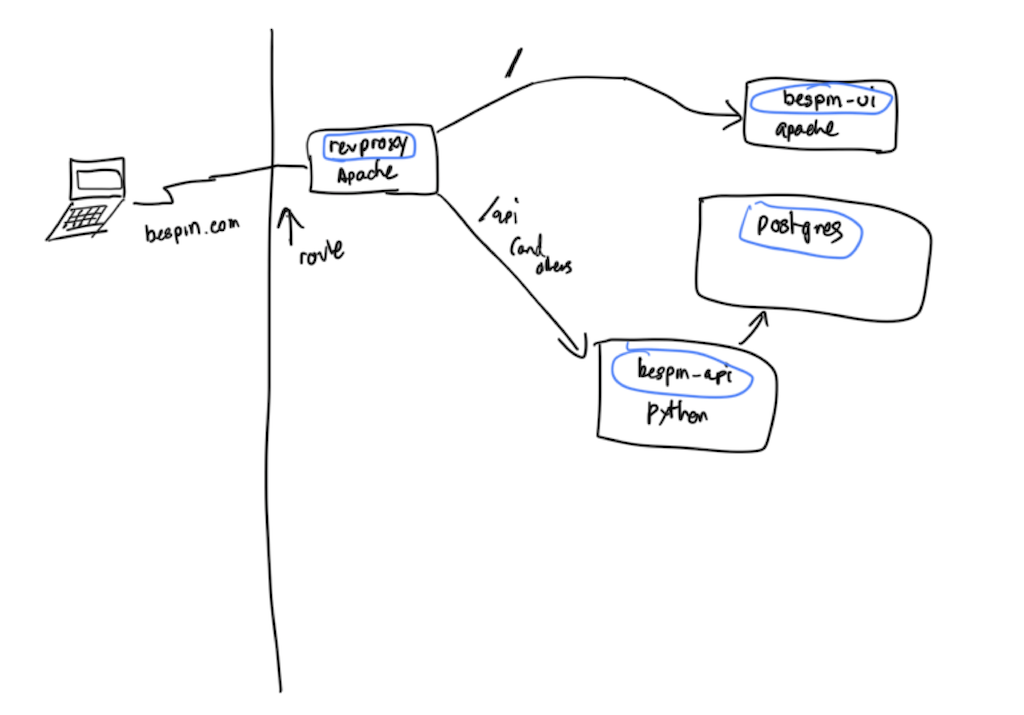 /
bespin-ui
apache
revproxy
Apache
bespin.com
route
/api
(and
others
postgres
bespin-api
python